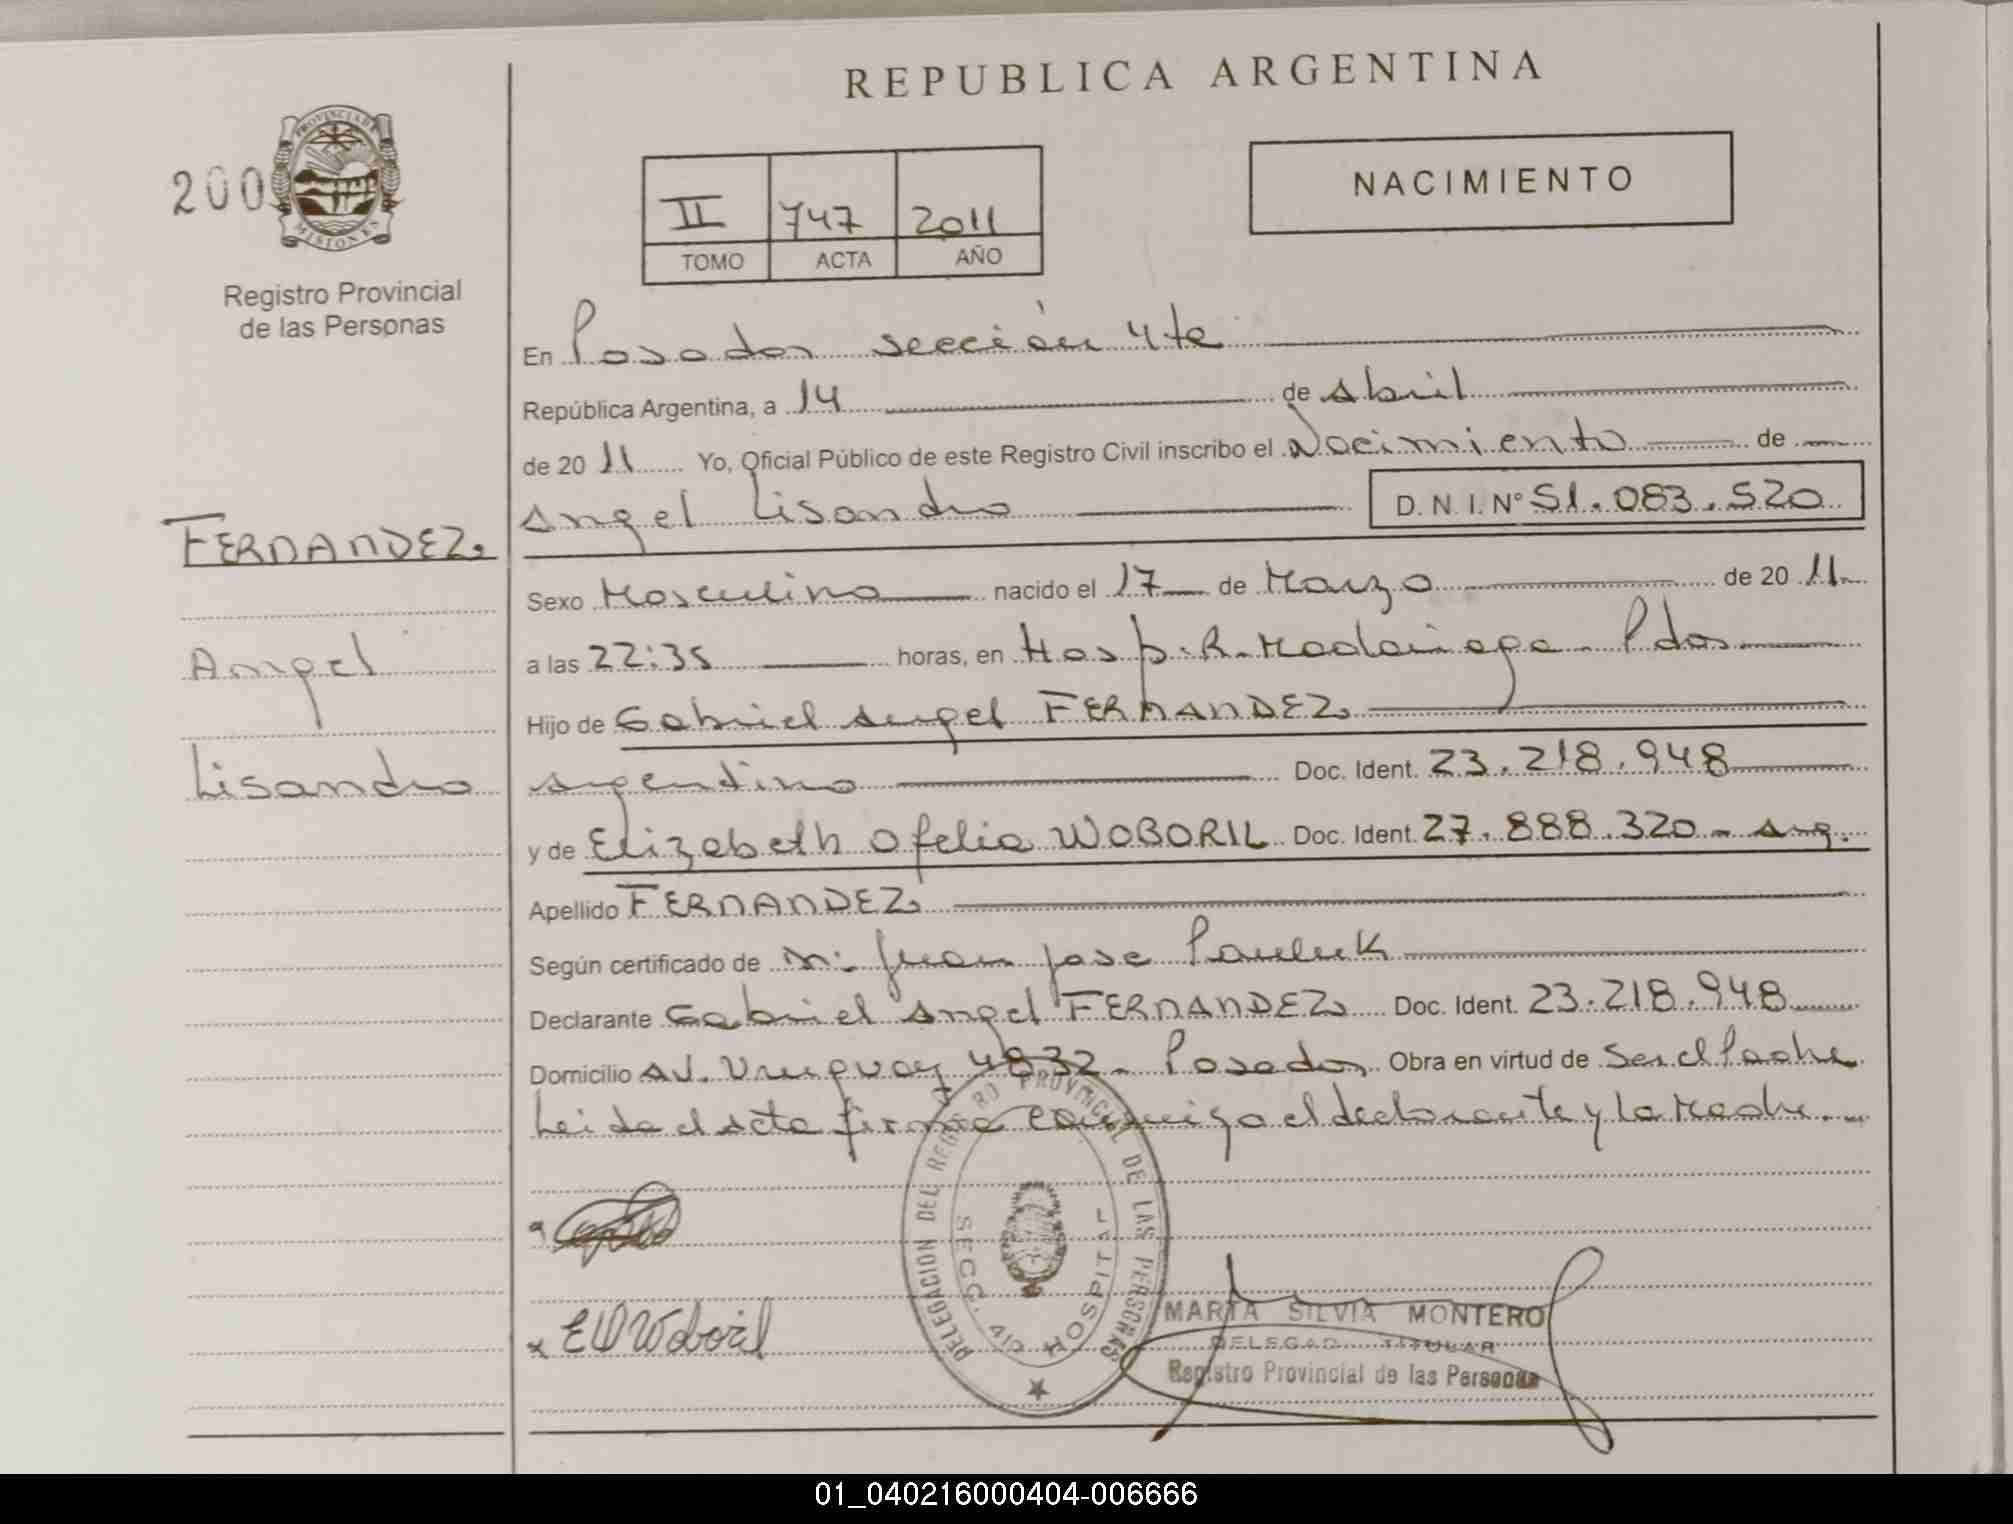 REPUBLICA ARGENTINA
200
PROVINCIA DE MISIONES
Registro Provincial
de las Personas
II 747 2011
TOMO ACTA AÑO
NACIMIENTO
En Posadas sección 4ta
República Argentina, a 14 de Abril
de 2011 Yo, Oficial Público de este Registro Civil inscribo el Nacimiento de
Angel Lisandro D.N.I. Nº 51.083.520
FERNANDEZ
Angel
Lisandro
Sexo Masculino nacido el 17 de Marzo de 2011
a las 22:35 horas, en Hosp. R. Madariaga - Pdas
Hijo de Gabriel Angel FERNANDEZ
argentino Doc. Ident. 23.218.948
y de Elizabeth Ofelia WOBORIL Doc. Ident. 27.888.320 - Arg.
Apellido FERNANDEZ
Según certificado de Juan Jose Pauluk
Declarante Gabriel Angel FERNANDEZ Doc. Ident. 23.218.948
Domicilio Av. Uruguay 4832 - Posadas Obra en virtud de Ser el Padre
Leida el Acta firma conmigo el declarante y La Madre.
DELEGACION DEL REGISTRO PROVINCIAL DE LAS PERSONAS
SECC. 4ta HOSPITAL
EOWoboril
MARTA SILVIA MONTERO
DELEGAD TITULAR
Registro Provincial de las Personas
01_040216000404-006666